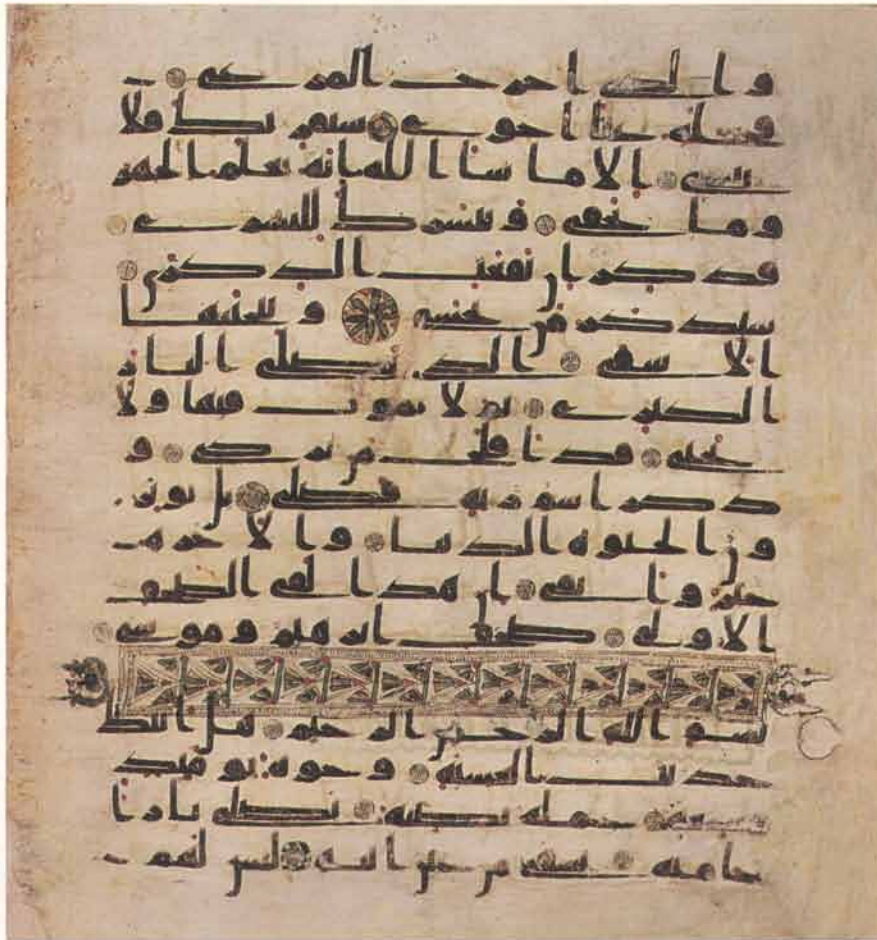 والذي اخرج المرعى
فجعله غثا احوى سنقرئك فلا
تنسى الا ما شا الله انه يعلم الجهر
وما يخفى ونيسرك لليسرى
فذكر ان نفعت الذكرى
سيذكر من يخشى ويتجنبها
الاشقى الذي يصلى النار
الكبرى ثم لا يموت فيها ولا
يحيى قد افلح من تزكى و
ذكر اسم ربه فصلى بل تؤثر
ون الحيوة الدنيا والاخرة
خير وابقى ان هذا لفي الصحف
الاولى صحف ابرهيم وموسى
بسم الله الرحمن الرحيم هل اتيك
حديث الغشية وجوه يومئذ
خشعة عملة نصبة تصلى نارا
حامية تسقى من عين انية ليس لهم